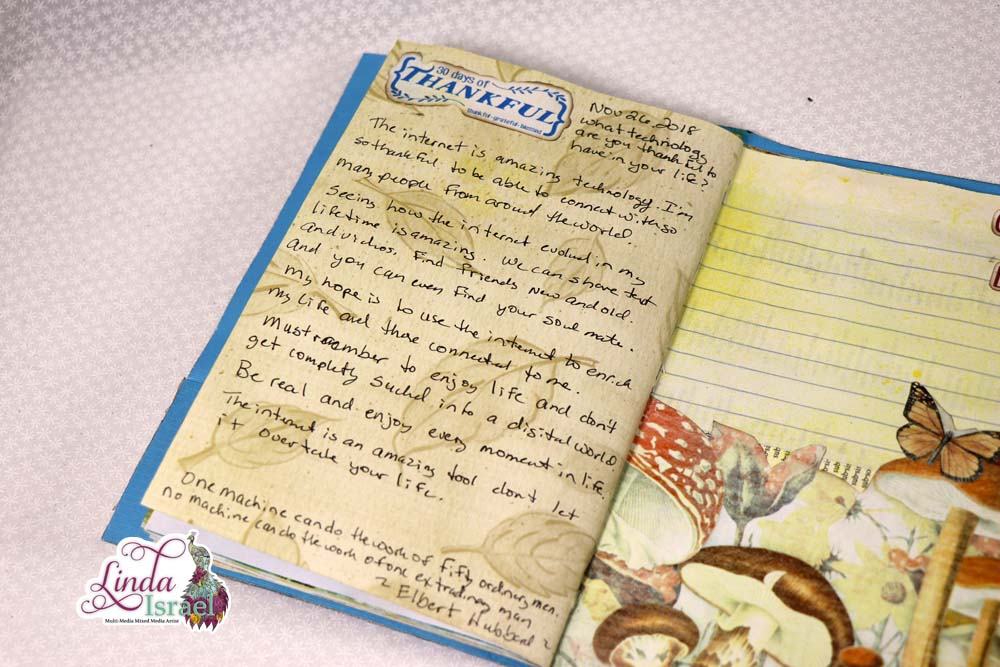 30 days of
THANKFUL
thankful-grateful-blessed
Nov 26, 2018
what technology
are you thankful to
have in your life?
The internet is amazing technology. I'm
so thankful to be able to connect with so
many people from around the world.
Seeing how the internet evolved in my
lifetime is amazing. We can share text
and videos. Find friends new and old.
and you can even find your soul mate.
My hope is to use the internet to enrich
my life and those connected to me.
Must remember to enjoy life and don't
get completly sucked into a digital world
Be real and enjoy every moment in life.
The internet is an amazing tool don't let
it overtake your life.
One machine can do the work of fifty ordinary men.
no machine can do the work of one extradinary man
~ Elbert Hubbard ~
Linda
Israel
Multi-Media Mixed Media Artist